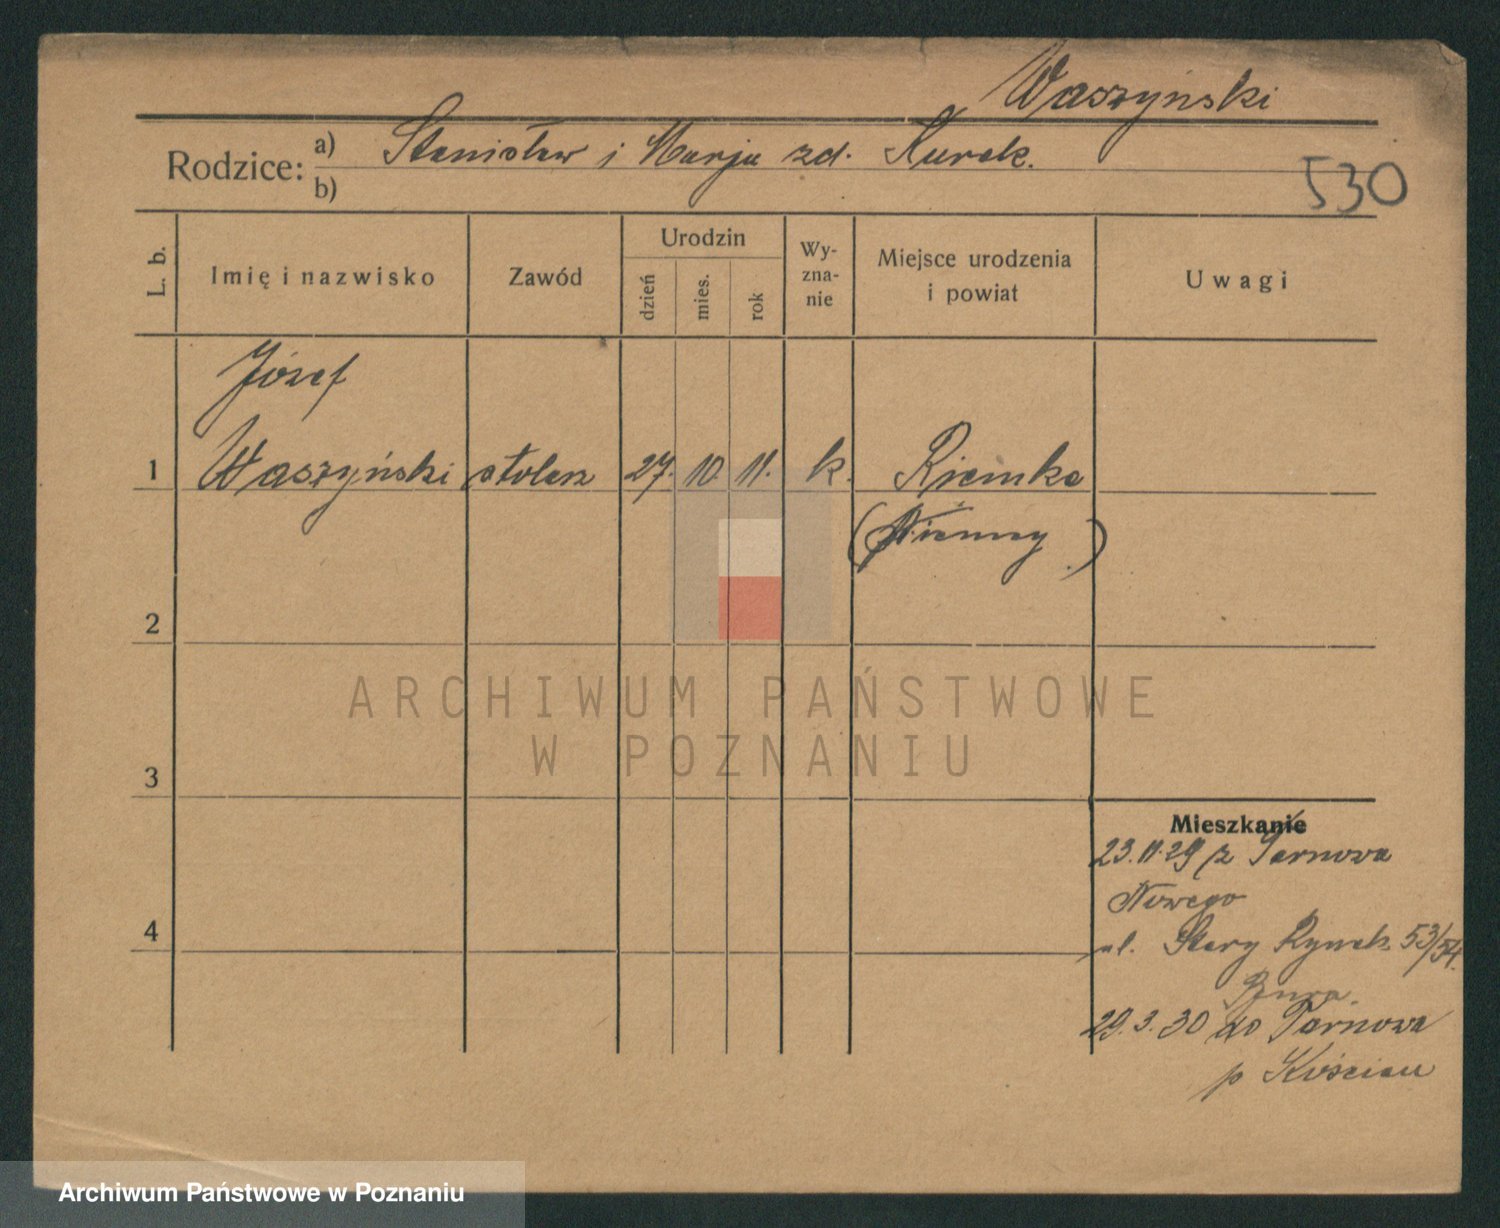 Waszyński
Rodzice: a) Stanisław i Marja zd. Kurek.
b)
530
L. b.
Imię i nazwisko
Zawód
Urodzin
dzień
mies.
rok
Wy-
zna-
nie
Miejsce urodzenia
i powiat
Uwagi
Józef
1 Waszyński stolarz 27. 10. 11. k. Riemke
(Niemcy.)
2
3
4
Mieszkanie
23.11.29 z Tarnowa
Nowego
ul. Stary Rynek 53/54.
29.3.30 do Tarnowa
p Kościan
ARCHIWUM PAŃSTWOWE
W POZNANIU
Archiwum Państwowe w Poznaniu